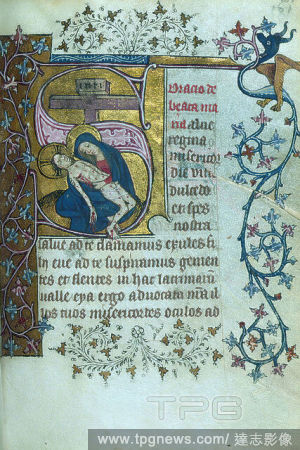 INRI
Oracio de
beata ma
ria alue
regina
misericor
die vita
dulcedo
et spes
nostra
salue ad te clamamus exules fi
lii eue ad te suspiramus gemen
tes et flentes in hac lacrimarum
ualle eya ergo aduocata nra il
los tuos misericordes oculos ad
TPG
www.tpgnews.com/達志影像